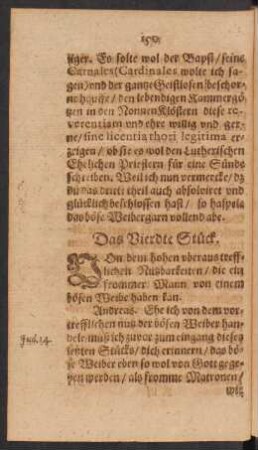 150.
tiger. Es solte wol der Bapst / seine
Carnales (Cardinales wolte ich sa-
gen) vnd der gantze Geistlosen beschor-
ne hauffe / den lebendigen Kammergö-
tzen in den Nonnen Klöstern diese re-
verentiam vnd ehre willig vnd ger-
ne / sine licentia thori legitima er-
zeigen / ob sie es wol den Lutherischen
Ehelichen Priestern für eine Sünde
schreiben. Weil ich nun vermercke / dz
du das dritte theil auch absolviret vnd
glücklich beschlossen hast / so haspele
das böse Weibergarn vollend abe.
Das Vierdte Stück.
VOn dem hohen vberaus treff-
lichen Nutzbarkeiten / die ein
frommer Mann von einem
bösen Weibe haben kan.
Andreas. Ehe ich von dem vor-
trefflichen nutz der bösen Weiber han-
dele / muß ich zuvor zum eingang dieses
letzten Stücks / dich erinnern / das bö-
se Weiber eben so wol von Gott gege-
ben werden / als fromme Matronen /
wie